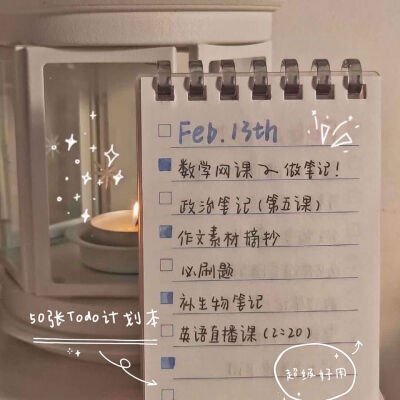 Feb. 13th
数学网课 2 做笔记!
政治笔记 (第五课)
作文素材摘抄
必刷题
补生物笔记
英语直播课 (2:20)
50张Todo计划本
超级好用